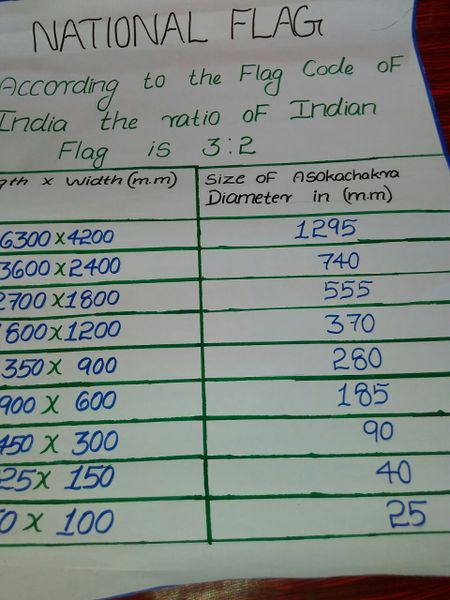 NATIONAL FLAG
According to the Flag Code of
India the ratio of Indian
Flag is 3:2
gth x width (m.m) Size of Asokachakra
Diameter in (m.m)
6300 x 4200 1295
3600 x 2400 740
2700 x 1800 555
800 x 1200 370
350 x 900 280
900 x 600 185
450 x 300 90
25 x 150 40
0 x 100 25